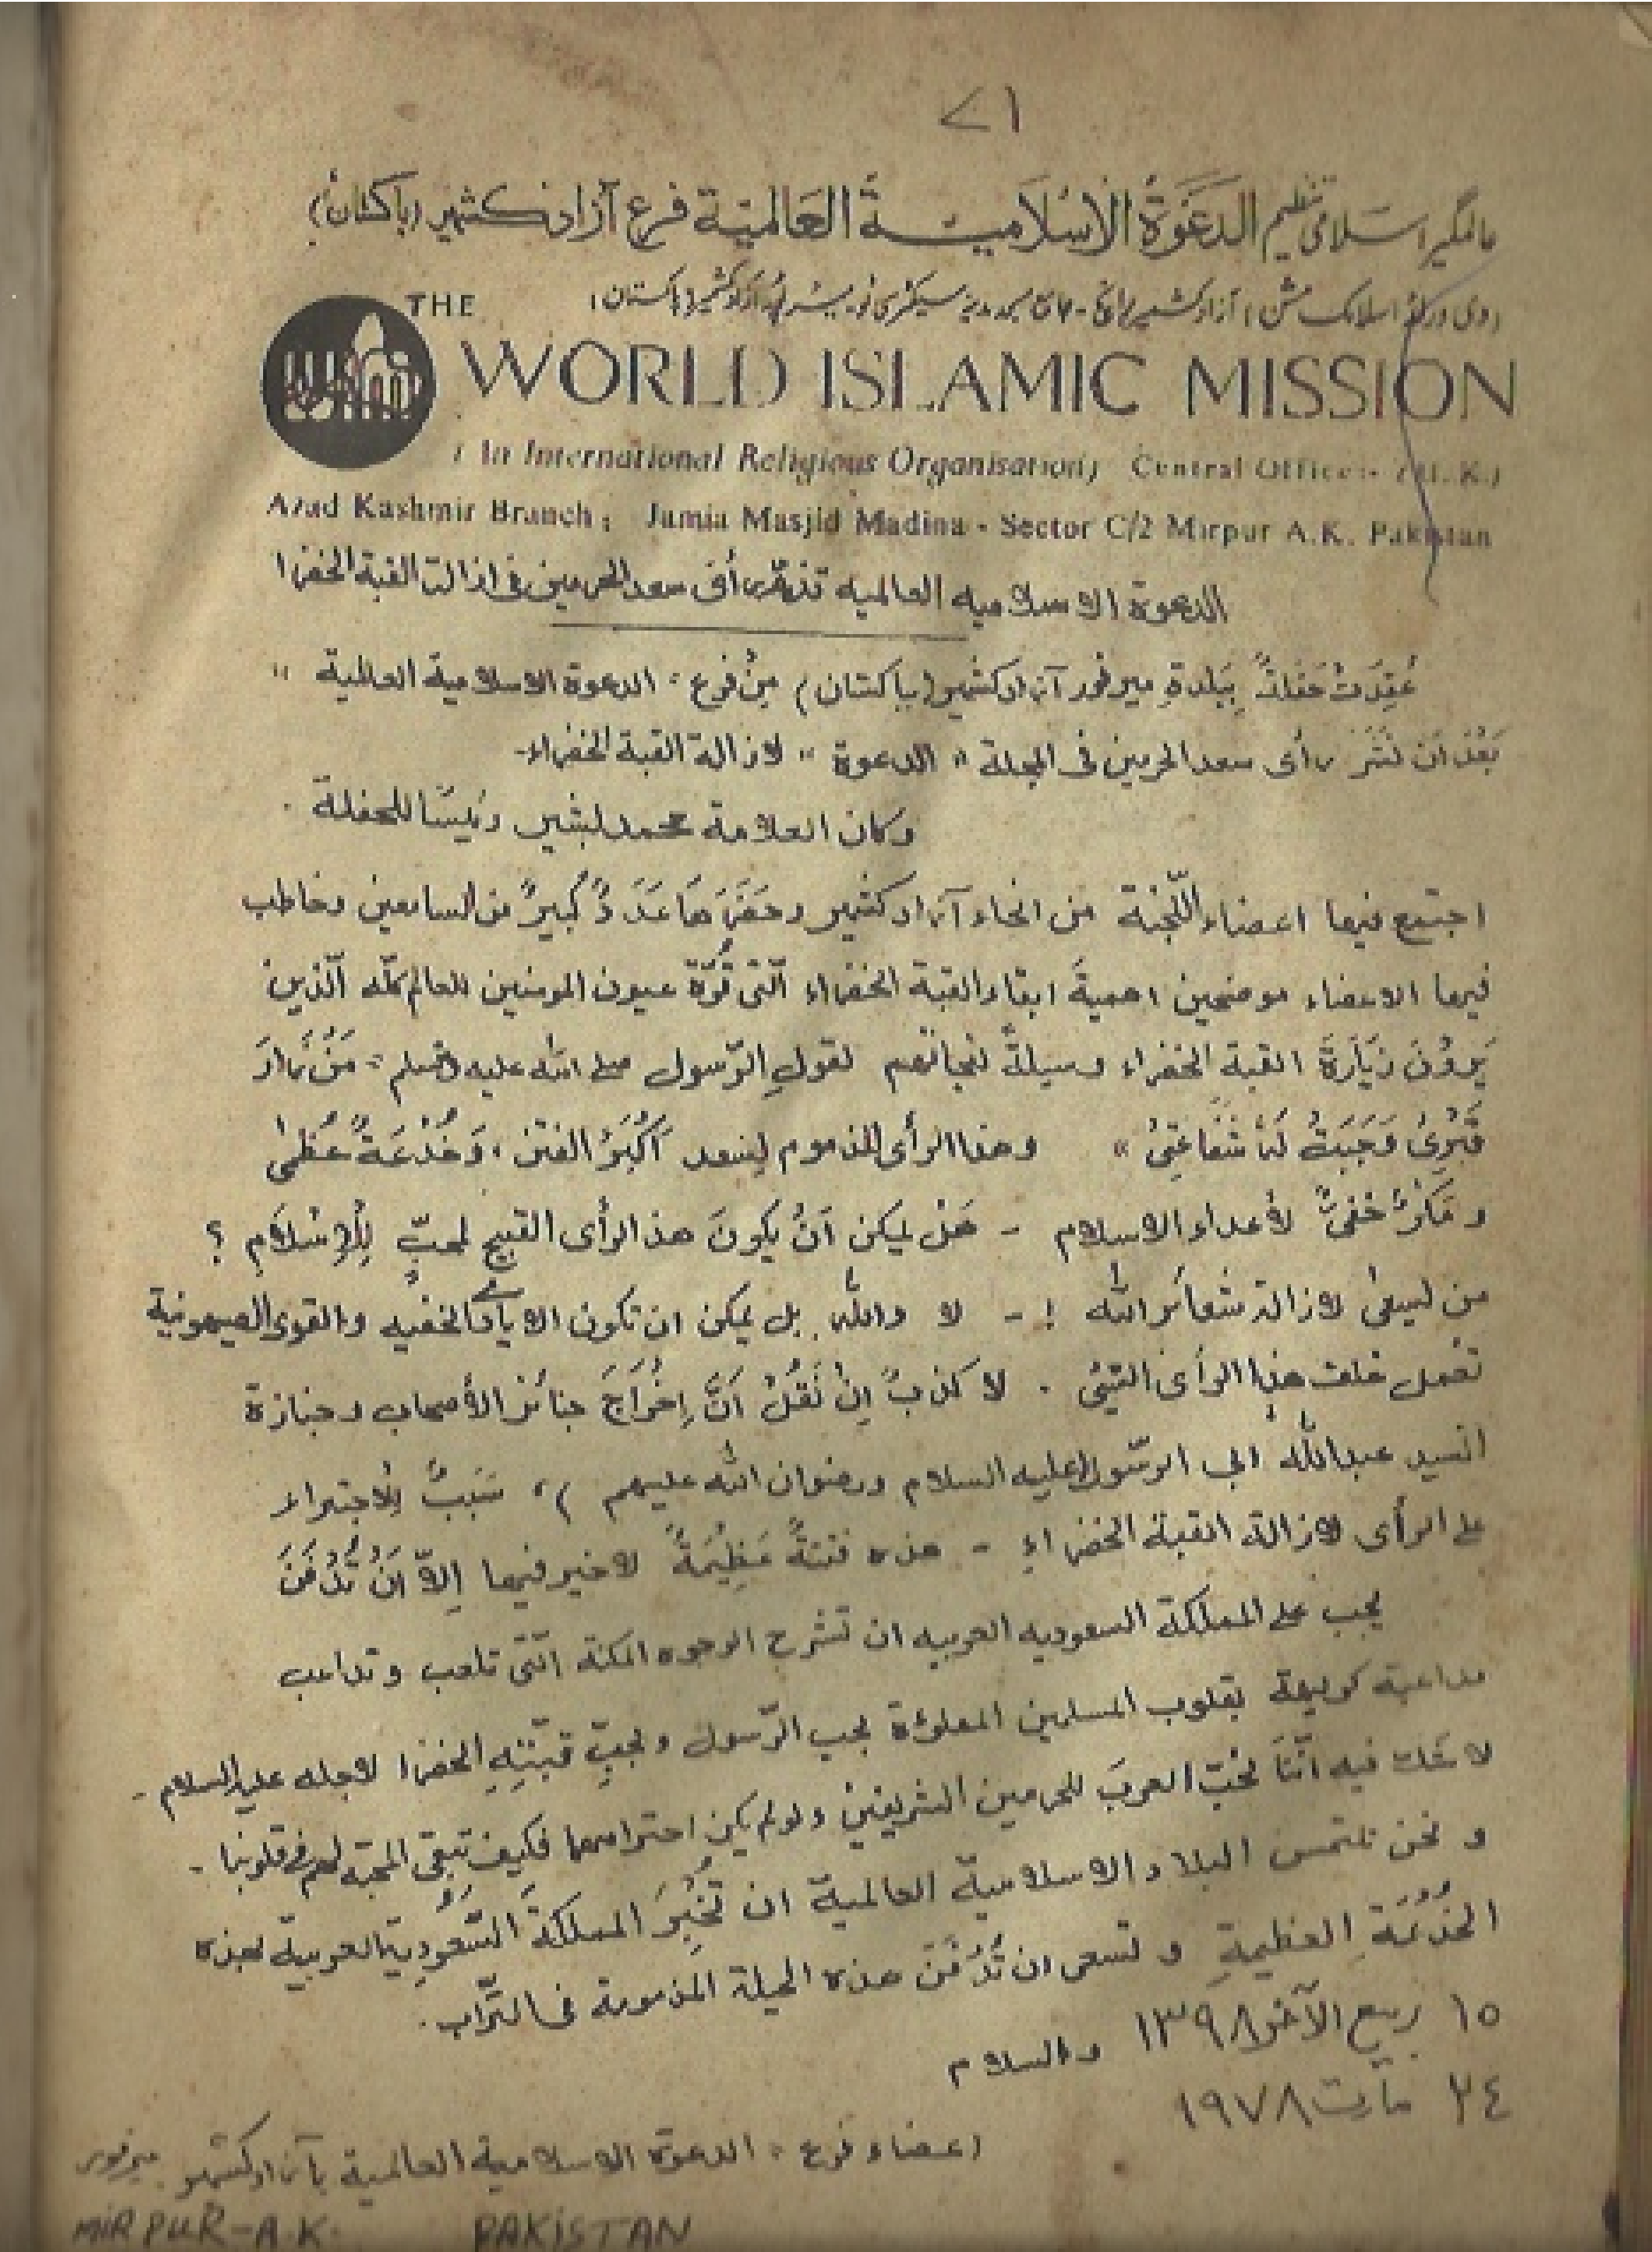 ٧١
عالمگیر اسلامی تنظیم الدَعَوَةُ الاِسْلَامِيَّةُ العَالميّة فرع آزاد كشمير (باكستان)
THE
WORLD ISLAMIC MISSION
( In International Religious Organisation) Central Office:- (U.K.)
Azad Kashmir Branch : Jamia Masjid Madina - Sector C/2 Mirpur A.K. Pakistan
الدعوة الاسلاميه العالميه رأى سعد الحرمين فى ازالت القبة الخضرا
عُقِدَتْ حَفلةٌ بِبَلدةِ ميرفور آزاد كشمير (بباكستان) مِنْ فرع " الدعوة الاسلامية العالمية "
بَعْدَ اَنْ نُشَرَ رأى سعد الحرمين فى المجلة " الدعوة " لازالة القبة الخضراء-
وكان العلامة محمد بشير رئيسًا للحفلة .
اجتمع فيها اعضاء اللّجنة من انحاء آزاد كشمير وحَضَرَهَا عَدَدٌ كَبيرٌ من السامعين وخاطب
فيها الاعضاء موضحين اهميةَ ابقاء القبة الخضراء الّتى قُرّة عيون المومنين للعالم كلّه الّذين
يَروْنَ زيَارَةَ القبة الخضراء وسيلةً لنجاتهم لقولِ الرّسول صلى الله عليه وسلم " مَنْ زَارَ
قَبْرِىْ وَجَبَتْ لَهٗ شَفَاعَتِىْ " وهذا الرأى المذموم لِسعد اَكْبَرُ الفتن، وَخُدْعَةٌ عُظمٰى
و مَكْرٌ خفىٌّ لأعداء الاسلام - هَلْ يمكن اَنْ يكونَ هذ الرأى القبيح لمحبٍّ لِلْاِسْلَامِ ؟
من يسعٰى لازالة شعائر الله ! - لا والله بل يمكن ان تكون الايادى الخفيه والقوى الصيهونية
تعمل خلف هذا الرأى . لا كذبٌ اِنْ نَقُلْ اَنَّ اِخْرَاجَ جنائز الأصحاب وجنازة
السيد عبد الله ابى الرّسول (عليه السلام ورضوان الله عليهم )، سَبَبٌ لِلْاجتراء
على الرأى لازالة القبة الخضراءِ - هذه فتنةٌ عَظِيْمَةٌ لا خير فيها اِلّا اَنْ تُدْفَنَ
يجب على المملكة السعوديه العربيه ان تشرح الوجوه الّتى تلعب وتداعب
مداعبة كريهة بقلوب المسلمين المملوءة بحب الرّسول وبحبِّ قبّتِهِ الخضرا لاجله عليه السلام -
لا شك فيه انّنَا نُحبّ العربَ للحرمين الشريفينْ ولو لم يكن احترامهما فكيف تبقى المحبّة لهم فى قلوبنا -
و نحن نلتمس البلاد الاسلاميةَ العالمية ان تُخْبِرَ المملكةَ السّعُودِيةَ العربيةَ بهذه
الخُدْعَةِ العظيمةِ و تسعى ان تُدْفَنَ هذه الحيلة المذمومة فى التّراب .
١٥ ربيع الآخر ١٣٩٨ والسلام
٢٤ مارت ١٩٧٨
اعضاء فرع " الدعوة الاسلامية العالمية بآزاد كشمير ميرفور
MIRPUR-A.K. PAKISTAN